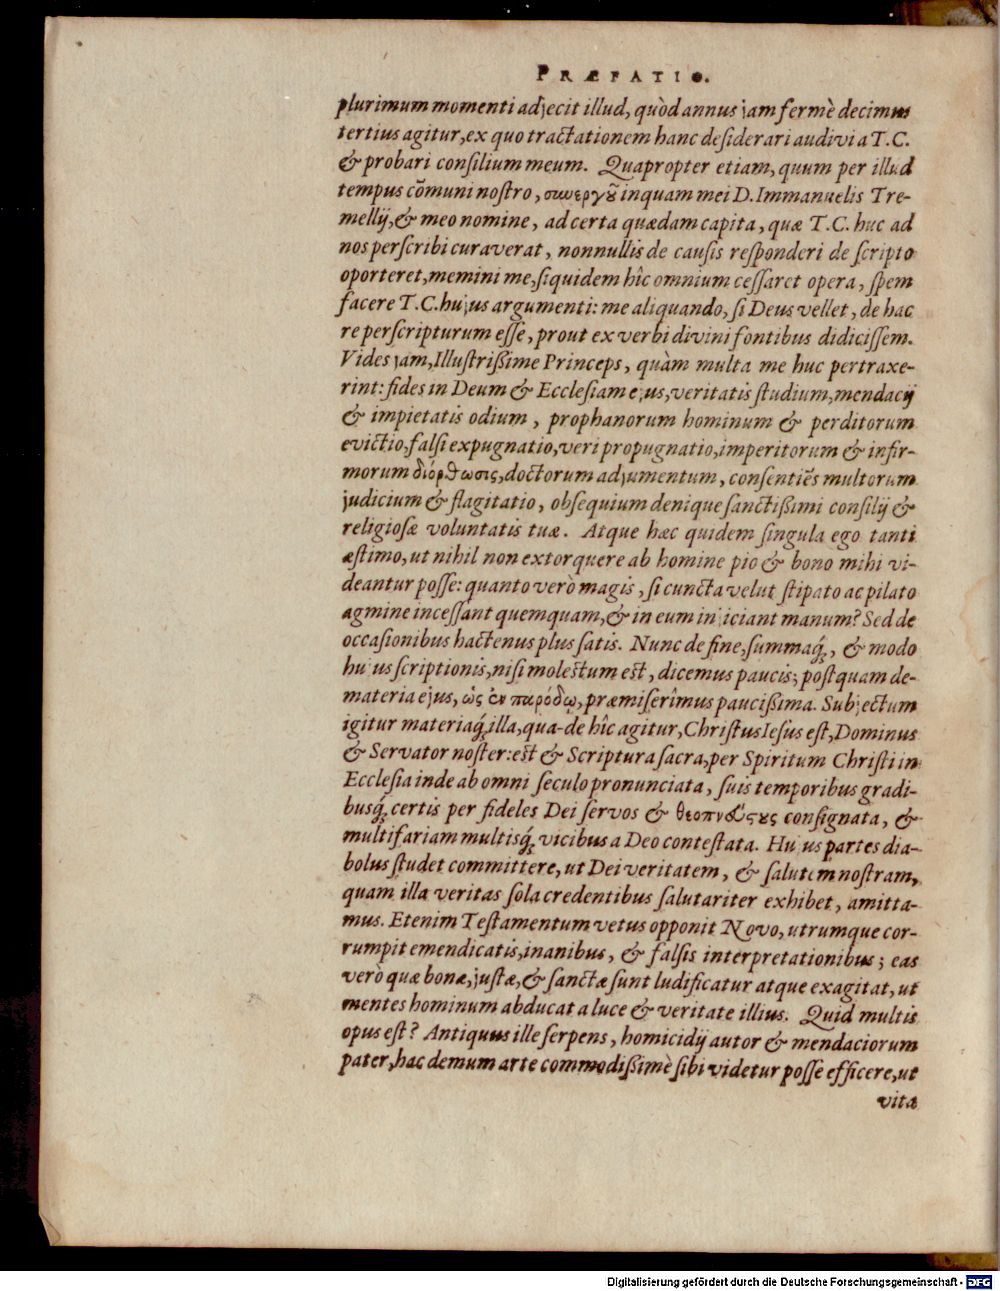 PRÆFATIO.
plurimum momenti adjecit illud, quòd annus jam fermè decimus
tertius agitur, ex quo tractationem hanc desiderari audivi a T. C.
& probari consilium meum. Quapropter etiam, quum per illud
tempus cōmuni nostro, συνεργοῦ inquam mei D. Immanuelis Tre-
mellij, & meo nomine, ad certa quædam capita, quæ T. C. huc ad
nos perscribi curaverat, nonnullis de causis responderi de scripto
oporteret, memini me, siquidem hîc omnium cessaret opera, spem
facere T. C. hujus argumenti: me aliquando, si Deus vellet, de hac
re perscripturum esse, prout ex verbi divini fontibus didicissem.
Vides jam, Illustrißime Princeps, quàm multa me huc pertraxe-
rint: fides in Deum & Ecclesiam ejus, veritatis studium, mendacij
& impietatis odium, prophanorum hominum & perditorum
evictio, falsi expugnatio, veri propugnatio, imperitorum & infir-
morum διόρθωσις, doctorum adjumentum, consentiēs multorum
judicium & flagitatio, obsequium denique sanctißimi consilij &
religiosæ voluntatis tuæ. Atque hæc quidem singula ego tanti
æstimo, ut nihil non extorquere ab homine pio & bono mihi vi-
deantur posse: quanto verò magis, si cuncta velut stipato ac pilato
agmine incessant quemquam, & in eum injiciant manum? Sed de
occasionibus hactenus plus satis. Nunc de fine, summaq́;, & modo
hujus scriptionis, nisi molestum est, dicemus paucis; postquam de-
materia ejus, ὡς ἐν παρόδῳ, præmiserîmus paucißima. Subjectum
igitur materiaq́; illa, qua-de hîc agitur, Christus Iesus est, Dominus
& Servator noster: est & Scriptura sacra, per Spiritum Christi in
Ecclesia inde ab omni seculo pronunciata, suis temporibus gradi-
busq́; certis per fideles Dei servos & θεοπνεύστους consignata, &
multifariam multisq́; vicibus a Deo contestata. Hujus partes dia-
bolus studet committere, ut Dei veritatem, & salutem nostram,
quam illa veritas sola credentibus salutariter exhibet, amitta-
mus. Etenim Testamentum vetus opponit Novo, utrumque cor-
rumpit emendicatis, inanibus, & falsis interpretationibus; eas
verò quæ bonæ, justæ, & sanctæ sunt ludificatur atque exagitat, ut
mentes hominum abducat a luce & veritate illius. Quid multis
opus est? Antiquus ille serpens, homicidij autor & mendaciorum
pater, hac demum arte commodißimè sibi videtur posse efficere, ut
vita
Digitalisierung gefördert durch die Deutsche Forschungsgemeinschaft - DFG